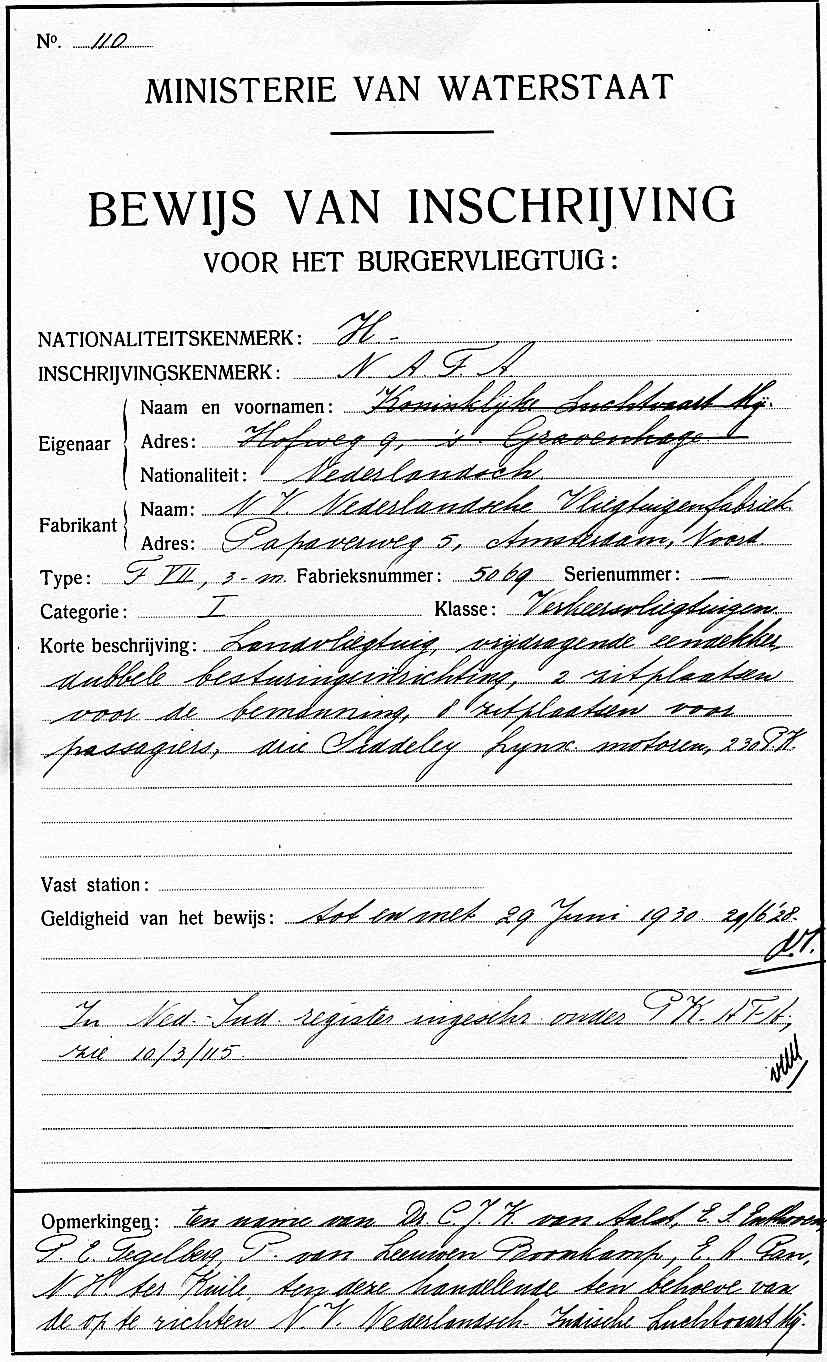 No. 110
MINISTERIE VAN WATERSTAAT
BEWIJS VAN INSCHRIJVING
VOOR HET BURGERVLIEGTUIG:
NATIONALITEITSKENMERK: H-
INSCHRIJVINGSKENMERK: N A F A
Eigenaar
Naam en voornamen: Koninklijke Luchtvaart Mij.
Adres: Hofweg 9, 's Gravenhage
Nationaliteit: Nederlandsch
Fabrikant
Naam: N.V. Nederlandsche Vliegtuigenfabriek
Adres: Papaverweg 5, Amsterdam, Noord.
Type: F VII, 3-m. Fabrieksnummer: 5069 Serienummer: —
Categorie: I Klasse: Verkeersvliegtuigen
Korte beschrijving: Landvliegtuig, vrijdragende eendekker,
dubbele besturingsinrichting, 2 zitplaatsen
voor de bemanning, 8 zitplaatsen voor
passagiers, drie Siddeley Lynx motoren, 230 P.K.
Vast station:
Geldigheid van het bewijs: tot en met 29 Juni 1930 29/6'28.
In Ned.-Ind. register ingeschr. onder P K. A F A,
zie 10/3/115.
Opmerkingen: ten name van Dr. C. J. K. van Aalst, E. S. Enthoven,
P. E. Tegelberg, P. van Leeuwen Boomkamp, E. A. Pan,
N. H. ter Kuile, ten deze handelende ten behoeve van
de op te richten N.V. Nederlandsch-Indische Luchtvaart Mij.